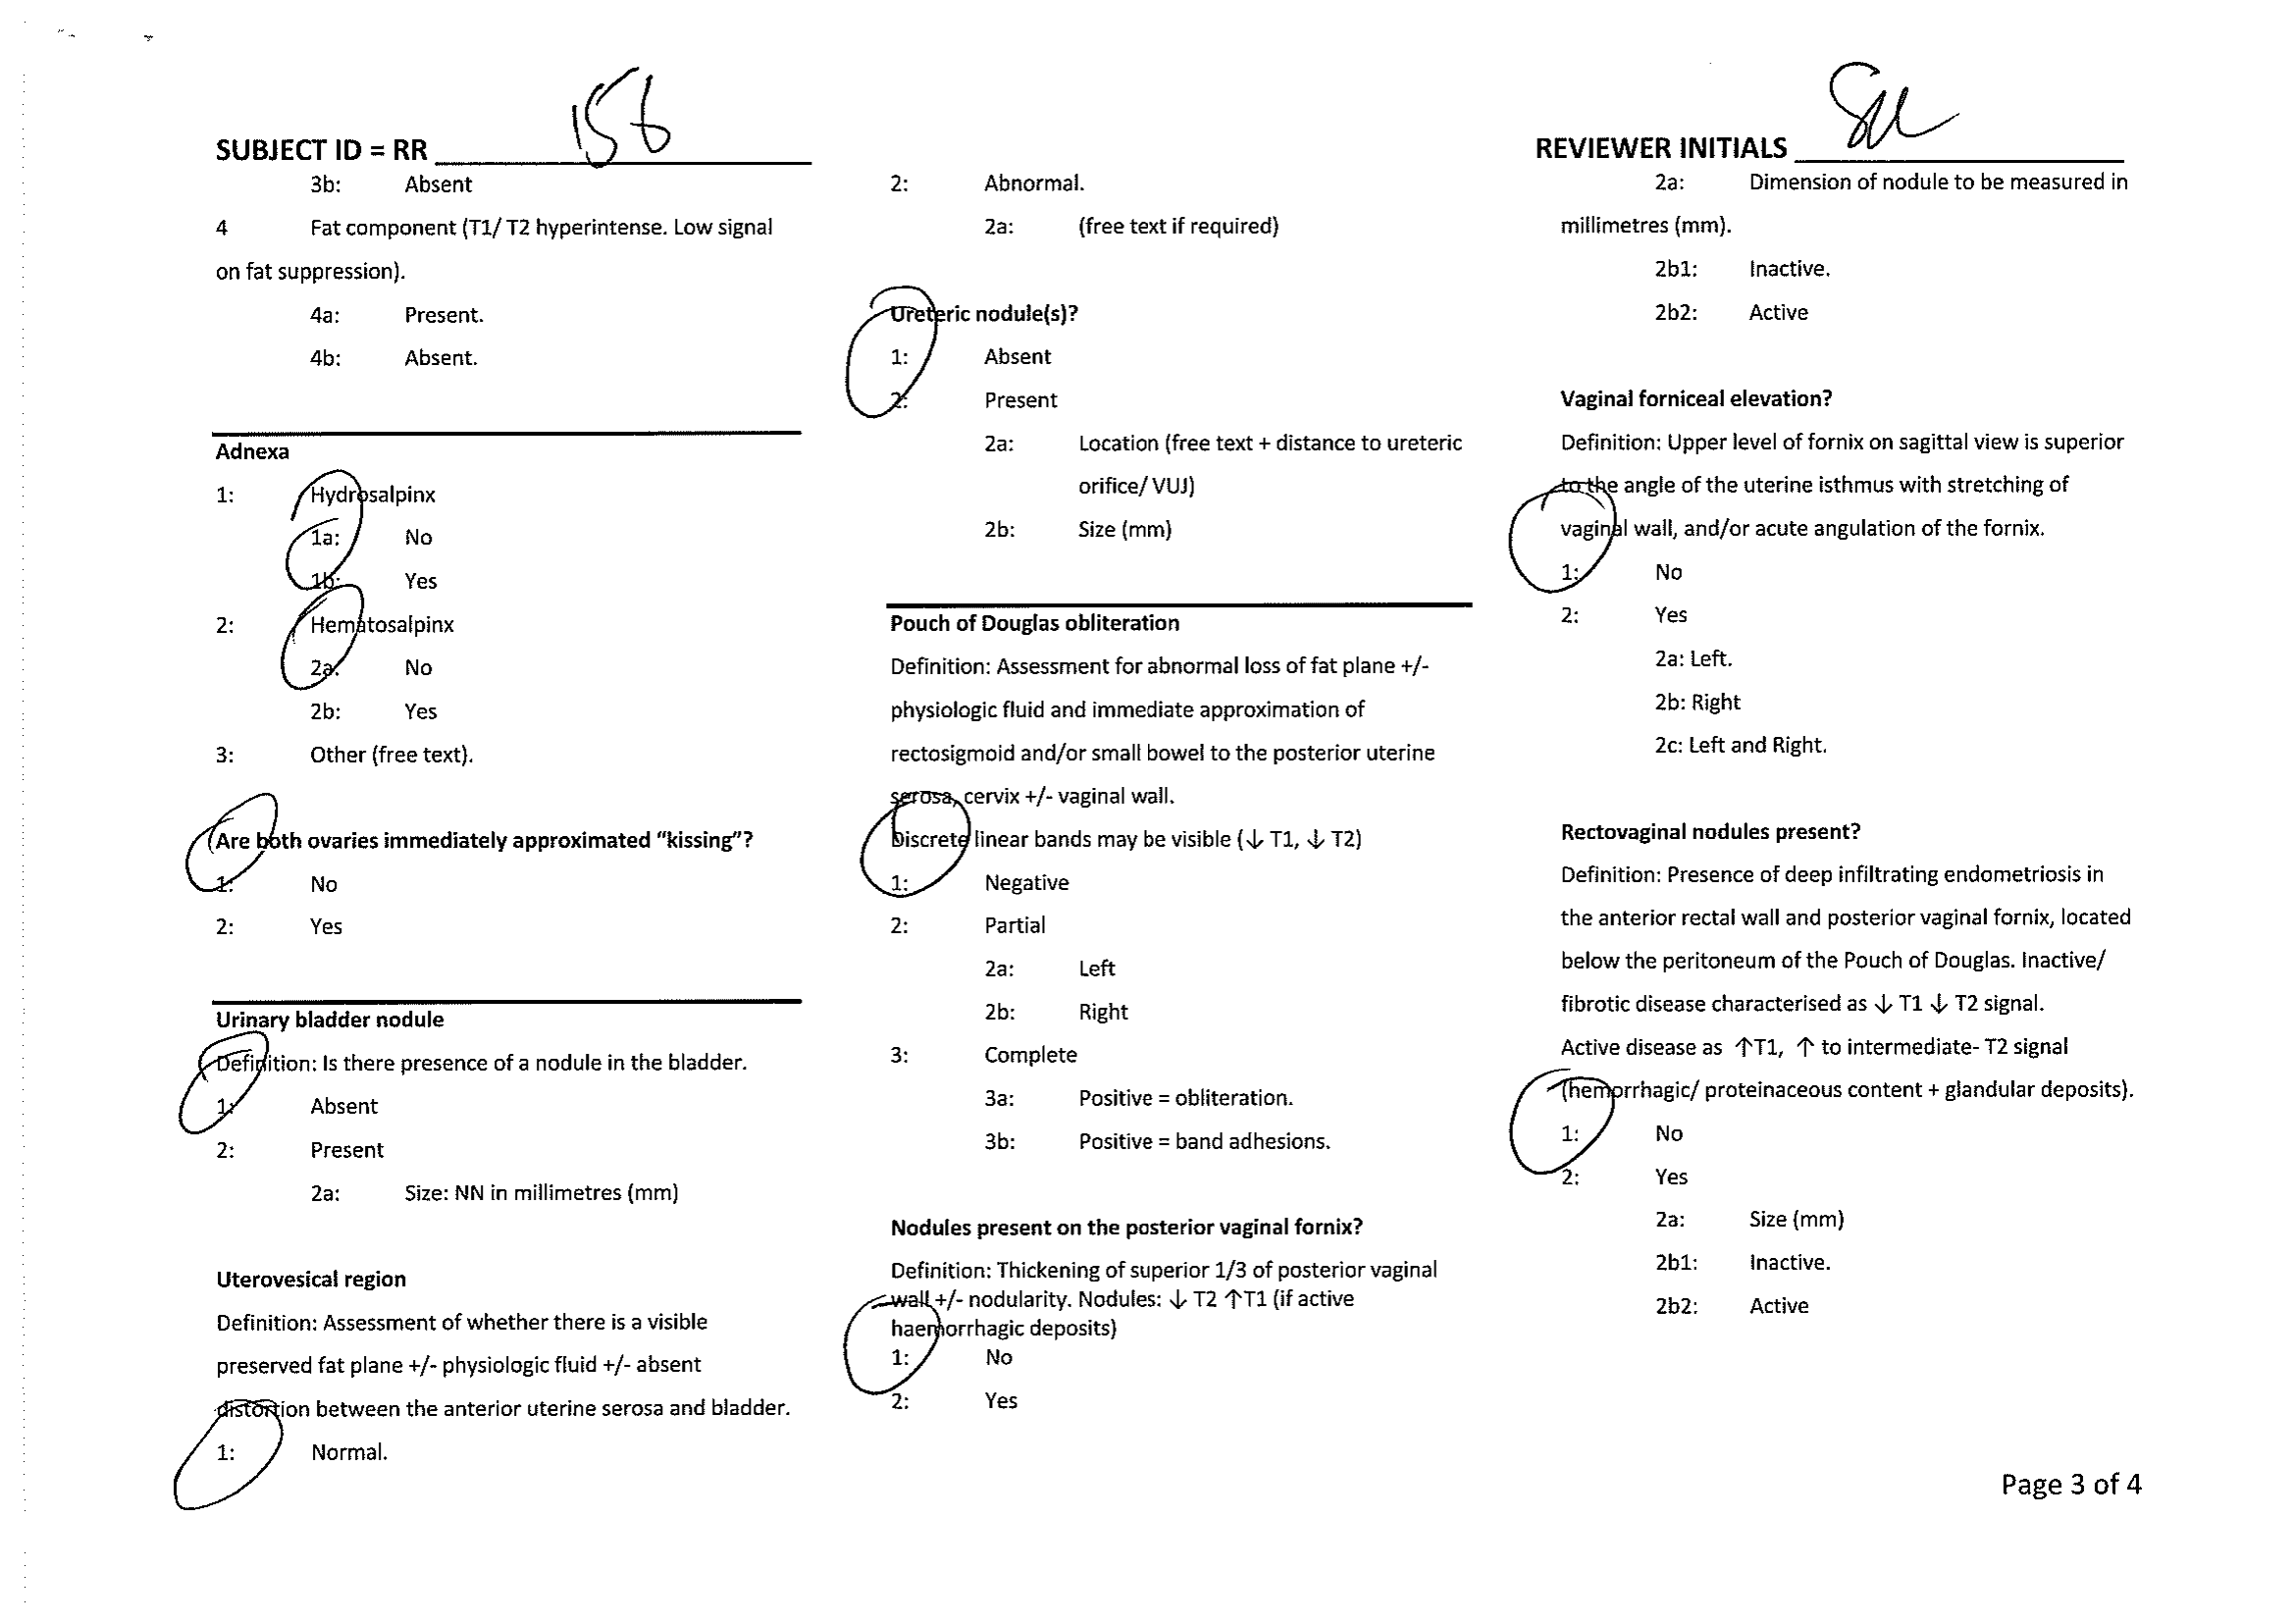 SUBJECT ID = RR 158
3b: Absent
4 Fat component (T1/ T2 hyperintense. Low signal
on fat suppression).
4a: Present.
4b: Absent.
Adnexa
1: Hydrosalpinx
1a: No
1b: Yes
2: Hematosalpinx
2a: No
2b: Yes
3: Other (free text).
Are both ovaries immediately approximated “kissing”?
1: No
2: Yes
Urinary bladder nodule
Definition: Is there presence of a nodule in the bladder.
1: Absent
2: Present
2a: Size: NN in millimetres (mm)
Uterovesical region
Definition: Assessment of whether there is a visible
preserved fat plane +/- physiologic fluid +/- absent
distortion between the anterior uterine serosa and bladder.
1: Normal.
2: Abnormal.
2a: (free text if required)
Ureteric nodule(s)?
1: Absent
2: Present
2a: Location (free text + distance to ureteric
orifice/ VUJ)
2b: Size (mm)
Pouch of Douglas obliteration
Definition: Assessment for abnormal loss of fat plane +/-
physiologic fluid and immediate approximation of
rectosigmoid and/or small bowel to the posterior uterine
serosa, cervix +/- vaginal wall.
Discrete linear bands may be visible (↓ T1, ↓ T2)
1: Negative
2: Partial
2a: Left
2b: Right
3: Complete
3a: Positive = obliteration.
3b: Positive = band adhesions.
Nodules present on the posterior vaginal fornix?
Definition: Thickening of superior 1/3 of posterior vaginal
wall +/- nodularity. Nodules: ↓ T2 ↑T1 (if active
haemorrhagic deposits)
1: No
2: Yes
REVIEWER INITIALS
2a: Dimension of nodule to be measured in
millimetres (mm).
2b1: Inactive.
2b2: Active
Vaginal forniceal elevation?
Definition: Upper level of fornix on sagittal view is superior
to the angle of the uterine isthmus with stretching of
vaginal wall, and/or acute angulation of the fornix.
1: No
2: Yes
2a: Left.
2b: Right
2c: Left and Right.
Rectovaginal nodules present?
Definition: Presence of deep infiltrating endometriosis in
the anterior rectal wall and posterior vaginal fornix, located
below the peritoneum of the Pouch of Douglas. Inactive/
fibrotic disease characterised as ↓ T1 ↓ T2 signal.
Active disease as ↑T1, ↑ to intermediate- T2 signal
(hemorrhagic/ proteinaceous content + glandular deposits).
1: No
2: Yes
2a: Size (mm)
2b1: Inactive.
2b2: Active
Page 3 of 4